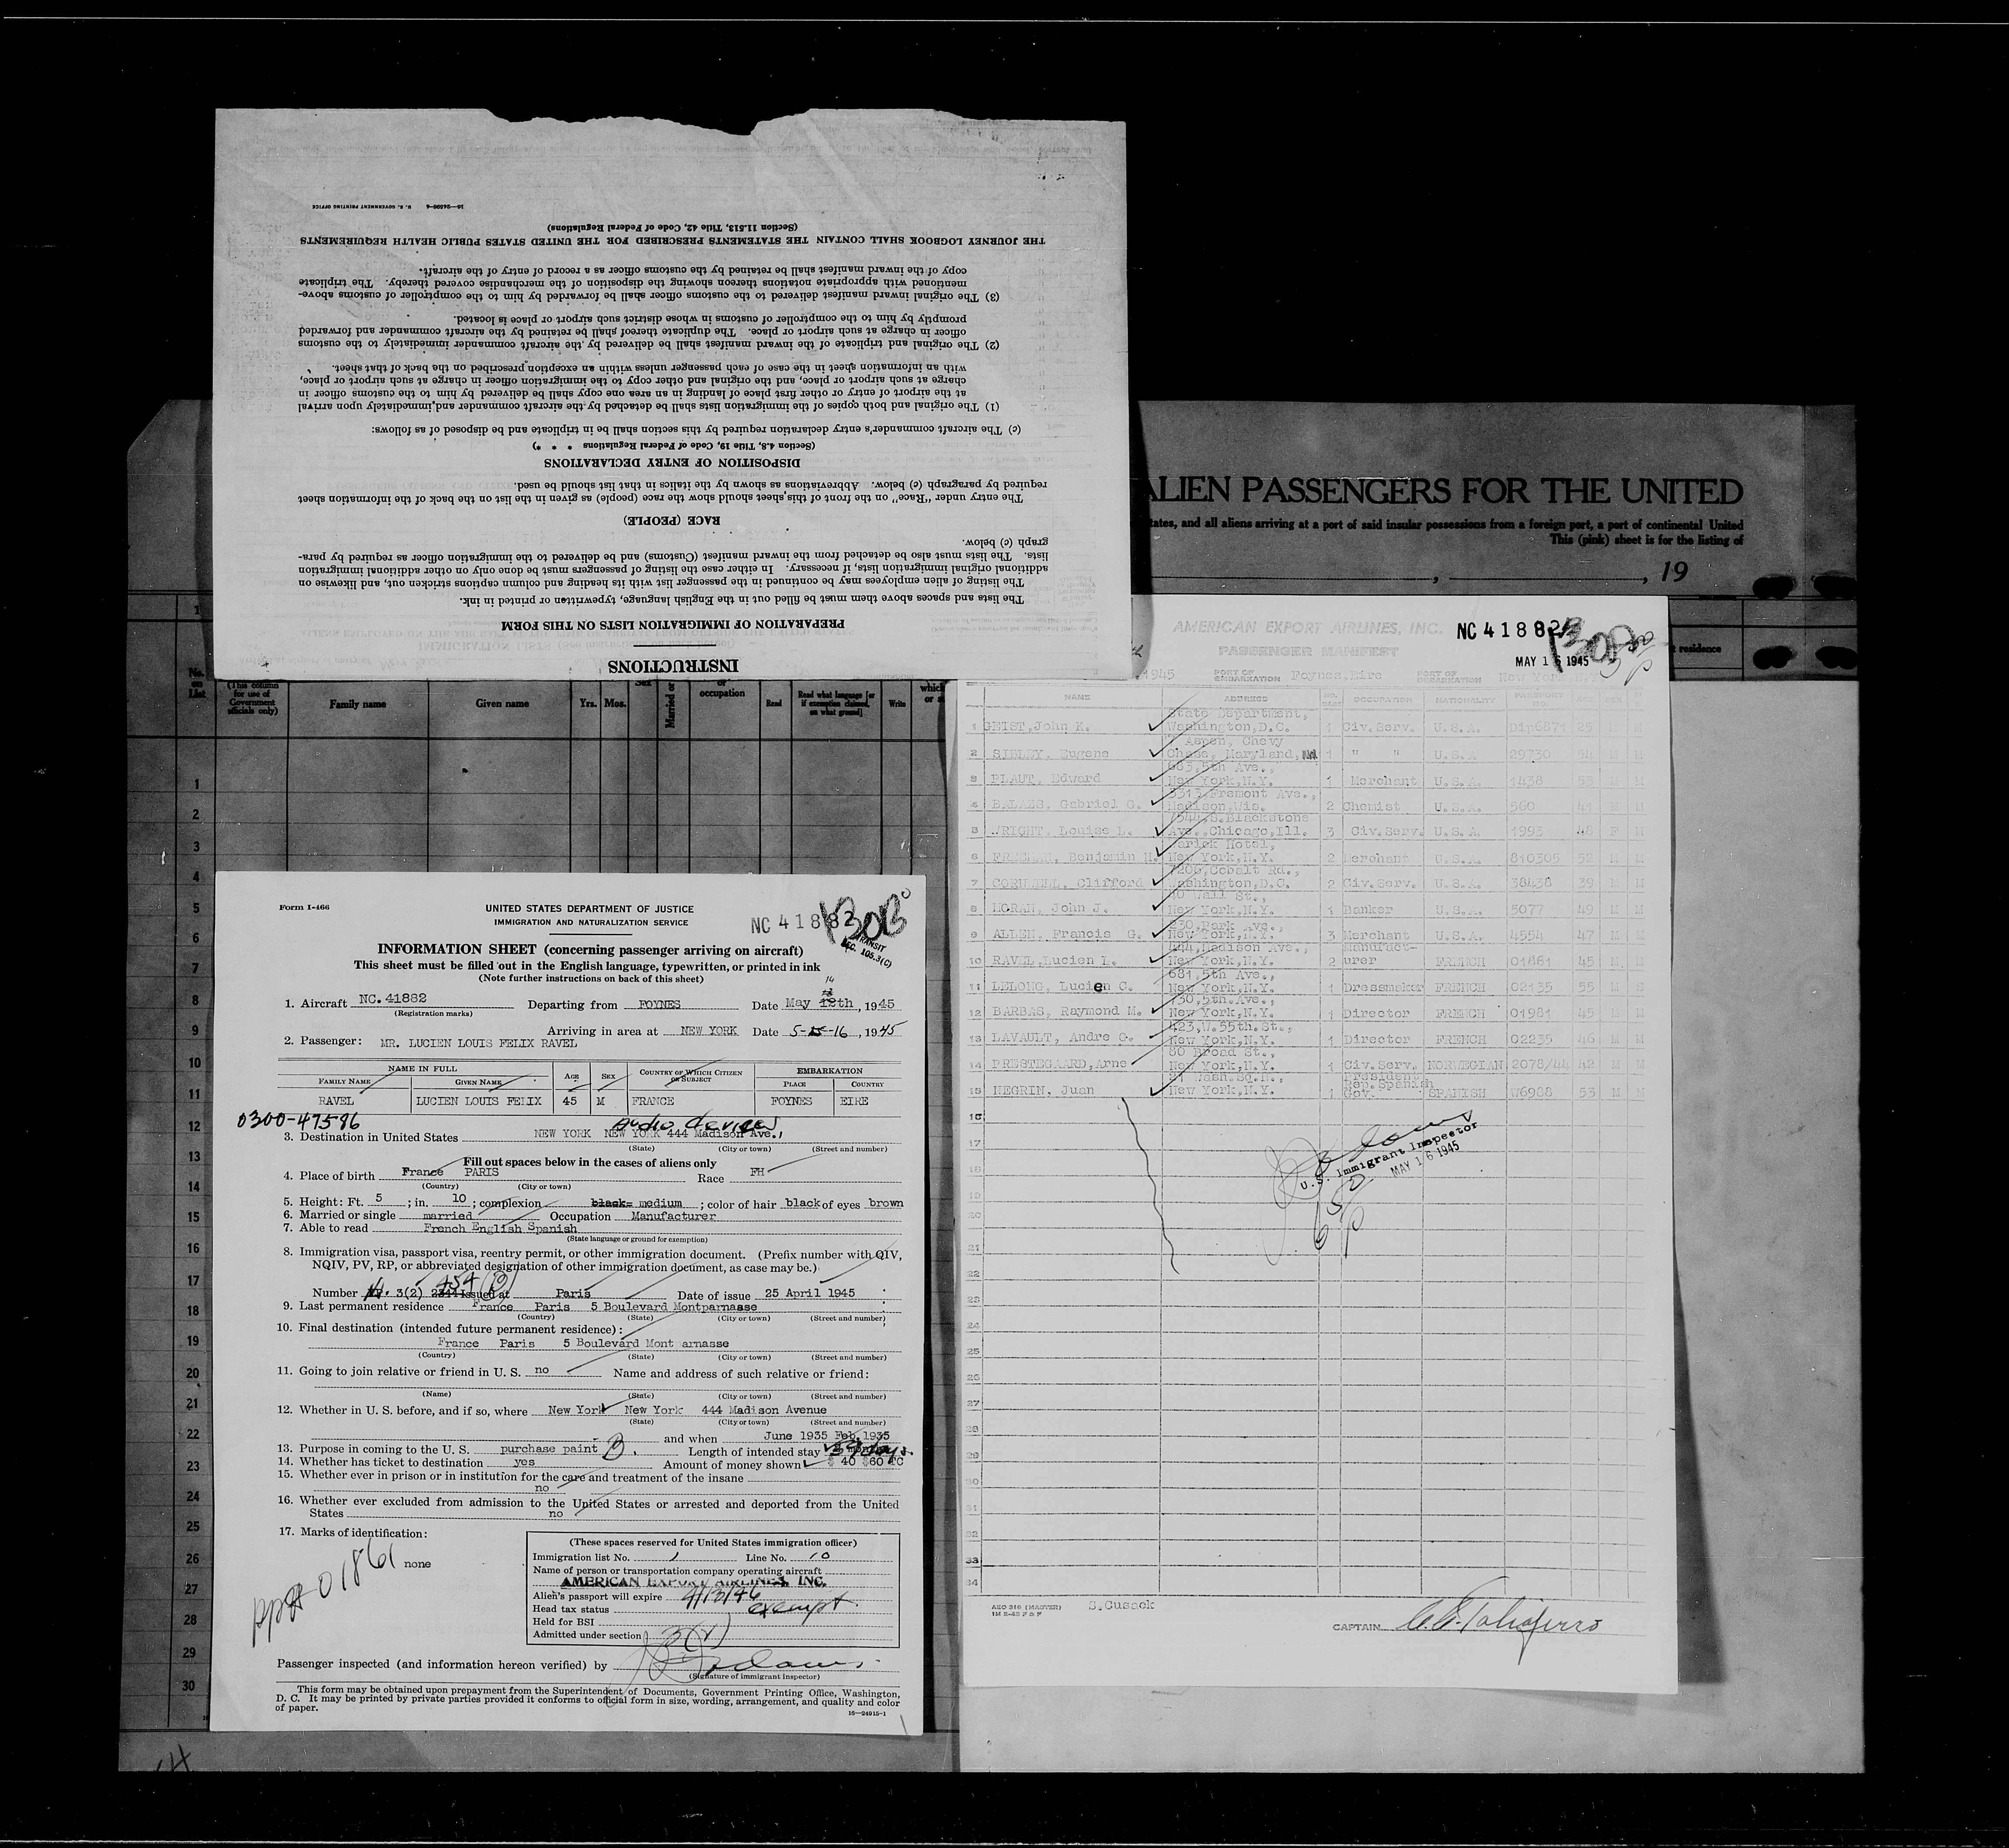 INSTRUCTIONS
PREPARATION OF IMMIGRATION LISTS ON THIS FORM
The lists and spaces above them must be filled out in the English language, typewritten or printed in ink.
The listing of alien employees may be continued in the passenger list with its heading and column captions stricken out, and likewise on
additional original immigration lists, if necessary. In either case the listing of passengers must be done only on other additional immigration
lists. The lists must also be detached from the inward manifest (Customs) and be delivered to the immigration officer as required by para-
graph (c) below.
RACE (PEOPLE)
The entry under "Race" on the front of this sheet should show the race (people) as given in the list on the back of the information sheet
required by paragraph (c) below. Abbreviations as shown by the italics in that list should be used.
DISPOSITION OF ENTRY DECLARATIONS
(Section 4.8, Title 19, Code of Federal Regulations * * *)
(c) The aircraft commander's entry declaration required by this section shall be in triplicate and be disposed of as follows:
(1) The original and both copies of the immigration lists shall be detached by the aircraft commander and immediately upon arrival
at the airport of entry or other first place of landing in an area one copy shall be delivered by him to the customs officer in
charge at such airport or place, and the original and other copy to the immigration officer in charge at such airport or place,
with an information sheet in the case of each passenger unless within an exception prescribed on the back of that sheet.
(2) The original and triplicate of the inward manifest shall be delivered by the aircraft commander immediately to the customs
officer in charge at such airport or place. The duplicate thereof shall be retained by the aircraft commander and forwarded
promptly by him to the comptroller of customs in whose district such airport or place is located.
(3) The original inward manifest delivered to the customs officer shall be forwarded by him to the comptroller of customs above-
mentioned with appropriate notations thereon showing the disposition of the merchandise covered thereby. The triplicate
copy of the inward manifest shall be retained by the customs officer as a record of entry of the aircraft.
THE JOURNEY LOGBOOK SHALL CONTAIN THE STATEMENTS PRESCRIBED FOR THE UNITED STATES PUBLIC HEALTH REQUIREMENTS
(Section 11.513, Title 42, Code of Federal Regulations)
U. S. GOVERNMENT PRINTING OFFICE
ALIEN PASSENGERS FOR THE UNITED
tates, and all aliens arriving at a port of said insular possessions from a foreign port, a port of continental United
This (pink) sheet is for the listing of
, 19
residence
No. on List
(This column for use of Government officials only)
Family name
Given name
Yrs. Mos.
Married or
or occupation
Read
Read what language [or if exemption claimed, on what ground]
Write
1
2
3
4
5
6
7
8
9
10
11
12
13
14
15
16
17
18
19
20
21
22
23
24
25
26
27
28
29
30
Form I-466
UNITED STATES DEPARTMENT OF JUSTICE
IMMIGRATION AND NATURALIZATION SERVICE
NC 41882
TRANSIT
SEC. 105.3(C)
INFORMATION SHEET (concerning passenger arriving on aircraft)
This sheet must be filled out in the English language, typewritten, or printed in ink
(Note further instructions on back of this sheet)
1. Aircraft NC.41882 Departing from FOYNES Date May 14, 1945
(Registration marks)
Arriving in area at NEW YORK Date 5-16, 1945
2. Passenger: MR. LUCIEN LOUIS FELIX RAVEL
NAME IN FULL
FAMILY NAME GIVEN NAME AGE SEX COUNTRY OF WHICH CITIZEN OR SUBJECT EMBARKATION PLACE COUNTRY
RAVEL LUCIEN LOUIS FELIX 45 M FRANCE FOYNES EIRE
0300-47586
Audio devices
3. Destination in United States NEW YORK NEW YORK 444 Madison Ave.,
(State) (City or town) (Street and number)
Fill out spaces below in the cases of aliens only
4. Place of birth France PARIS Race FH
(Country) (City or town)
5. Height: Ft. 5 ; in. 10 ; complexion black= medium ; color of hair black of eyes brown
6. Married or single married Occupation Manufacturer
7. Able to read French English Spanish
(State language or ground for exemption)
8. Immigration visa, passport visa, reentry permit, or other immigration document. (Prefix number with QIV,
NQIV, PV, RP, or abbreviated designation of other immigration document, as case may be.)
454
Number 3(2) Issued at Paris Date of issue 25 April 1945
9. Last permanent residence France Paris 5 Boulevard Montparnasse
(Country) (State) (City or town) (Street and number)
10. Final destination (intended future permanent residence):
France Paris 5 Boulevard Mont arnasse
(Country) (State) (City or town) (Street and number)
11. Going to join relative or friend in U. S. no Name and address of such relative or friend:
(Name) (State) (City or town) (Street and number)
12. Whether in U. S. before, and if so, where New York New York 444 Madison Avenue
(State) (City or town) (Street and number)
and when June 1935 Feb 1935
13. Purpose in coming to the U. S. purchase paint B. Length of intended stay days
14. Whether has ticket to destination yes Amount of money shown $ 40 $60 TC
15. Whether ever in prison or in institution for the care and treatment of the insane
no
16. Whether ever excluded from admission to the United States or arrested and deported from the United
States no
17. Marks of identification:
none
pp# 01861
(These spaces reserved for United States immigration officer)
Immigration list No. 1 Line No. 10
Name of person or transportation company operating aircraft
AMERICAN EXPORT AIRLINES, INC.
Alien's passport will expire 4/13/46
Head tax status exempt
Held for BSI
Admitted under section 3(2)
Passenger inspected (and information hereon verified) by
(Signature of immigrant inspector)
This form may be obtained upon prepayment from the Superintendent of Documents, Government Printing Office, Washington,
D. C. It may be printed by private parties provided it conforms to official form in size, wording, arrangement, and quality and color
of paper.
16—24915-1
AMERICAN EXPORT AIRLINES, INC.
NC 41882
PASSENGER MANIFEST
MAY 16 1945
1945 PORT OF EMBARKATION Foynes, Eire PORT OF New York, N.Y.
NAME ADDRESS OCCUPATION NATIONALITY PASSPORT SEX
1 GEIST, John K. State Department, Washington, D.C. 1 Civ. Serv. U.S.A. Dip6871 25 M
2 SIBLEY, Eugene Aspen, Chevy Chase, Maryland, 1 " " U.S.A 29730 M M
3 PLAUT, Edward 685, 5th Ave., New York, N.Y. 1 Merchant U.S.A. 1438 53 M M
4 BALAZS, Gabriel G. 3313, Fremont Ave., Madison, Wis. 2 Chemist U.S.A. 560 41 M M
5 WRIGHT, Louise L. 7544, S. Blackstone Ave., Chicago, Ill. 3 Civ. Serv. U.S.A. 1993 48 F M
6 FREEMAN, Benjamin H. Warick Hotel, New York, N.Y. 2 Merchant U.S.A. 810305 52 M M
7 Clifford 7206, Cobalt Rd., Washington, D.C. 2 Civ. Serv. U.S.A. 38438 39 M M
8 MORAN, John J. 40 Wall St., New York, N.Y. Banker U.S.A. 5077 49 M M
9 ALLEN, Francis G. 230, Park Ave., New York, N.Y. 3 Merchant U.S.A. 4554 47 M M
10 RAVEL, Lucien L. 444, Madison Ave., New York, N.Y. 2 Manufact-urer FRENCH 01861 45 M M
11 LELONG, Lucien C. 681, 5th Ave., New York, N.Y. 1 Dressmaker FRENCH 02135 55 M S
12 BARBAS, Raymond M. 730, 5th. Ave., New York, N.Y. 1 Director FRENCH 01981 45 M M
13 LAVAULT, Andre G. 423, W. 55th. St., New York, N.Y. 1 Director FRENCH 02235 46 M M
14 PRESTEGAARD, Arne 80 Broad St., New York, N.Y. 1 Civ. Serv. NORWEGIAN 2078/44 42 M M
15 NEGRIN, Juan 21 Wash. Sq. N., New York, N.Y. 1 President Rep. Spanish Gov. SPANISH W6988 53 M M
16
17
18
19
20
21
22
23
24
25
26
27
28
29
30
31
32
33
34
U.S. Immigrant Inspector
MAY 16 1945
AEO 316 (MASTER)
S. Cusack
CAPTAIN